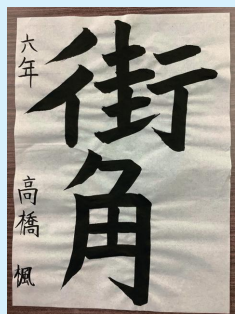 街角
六年 高橋 楓